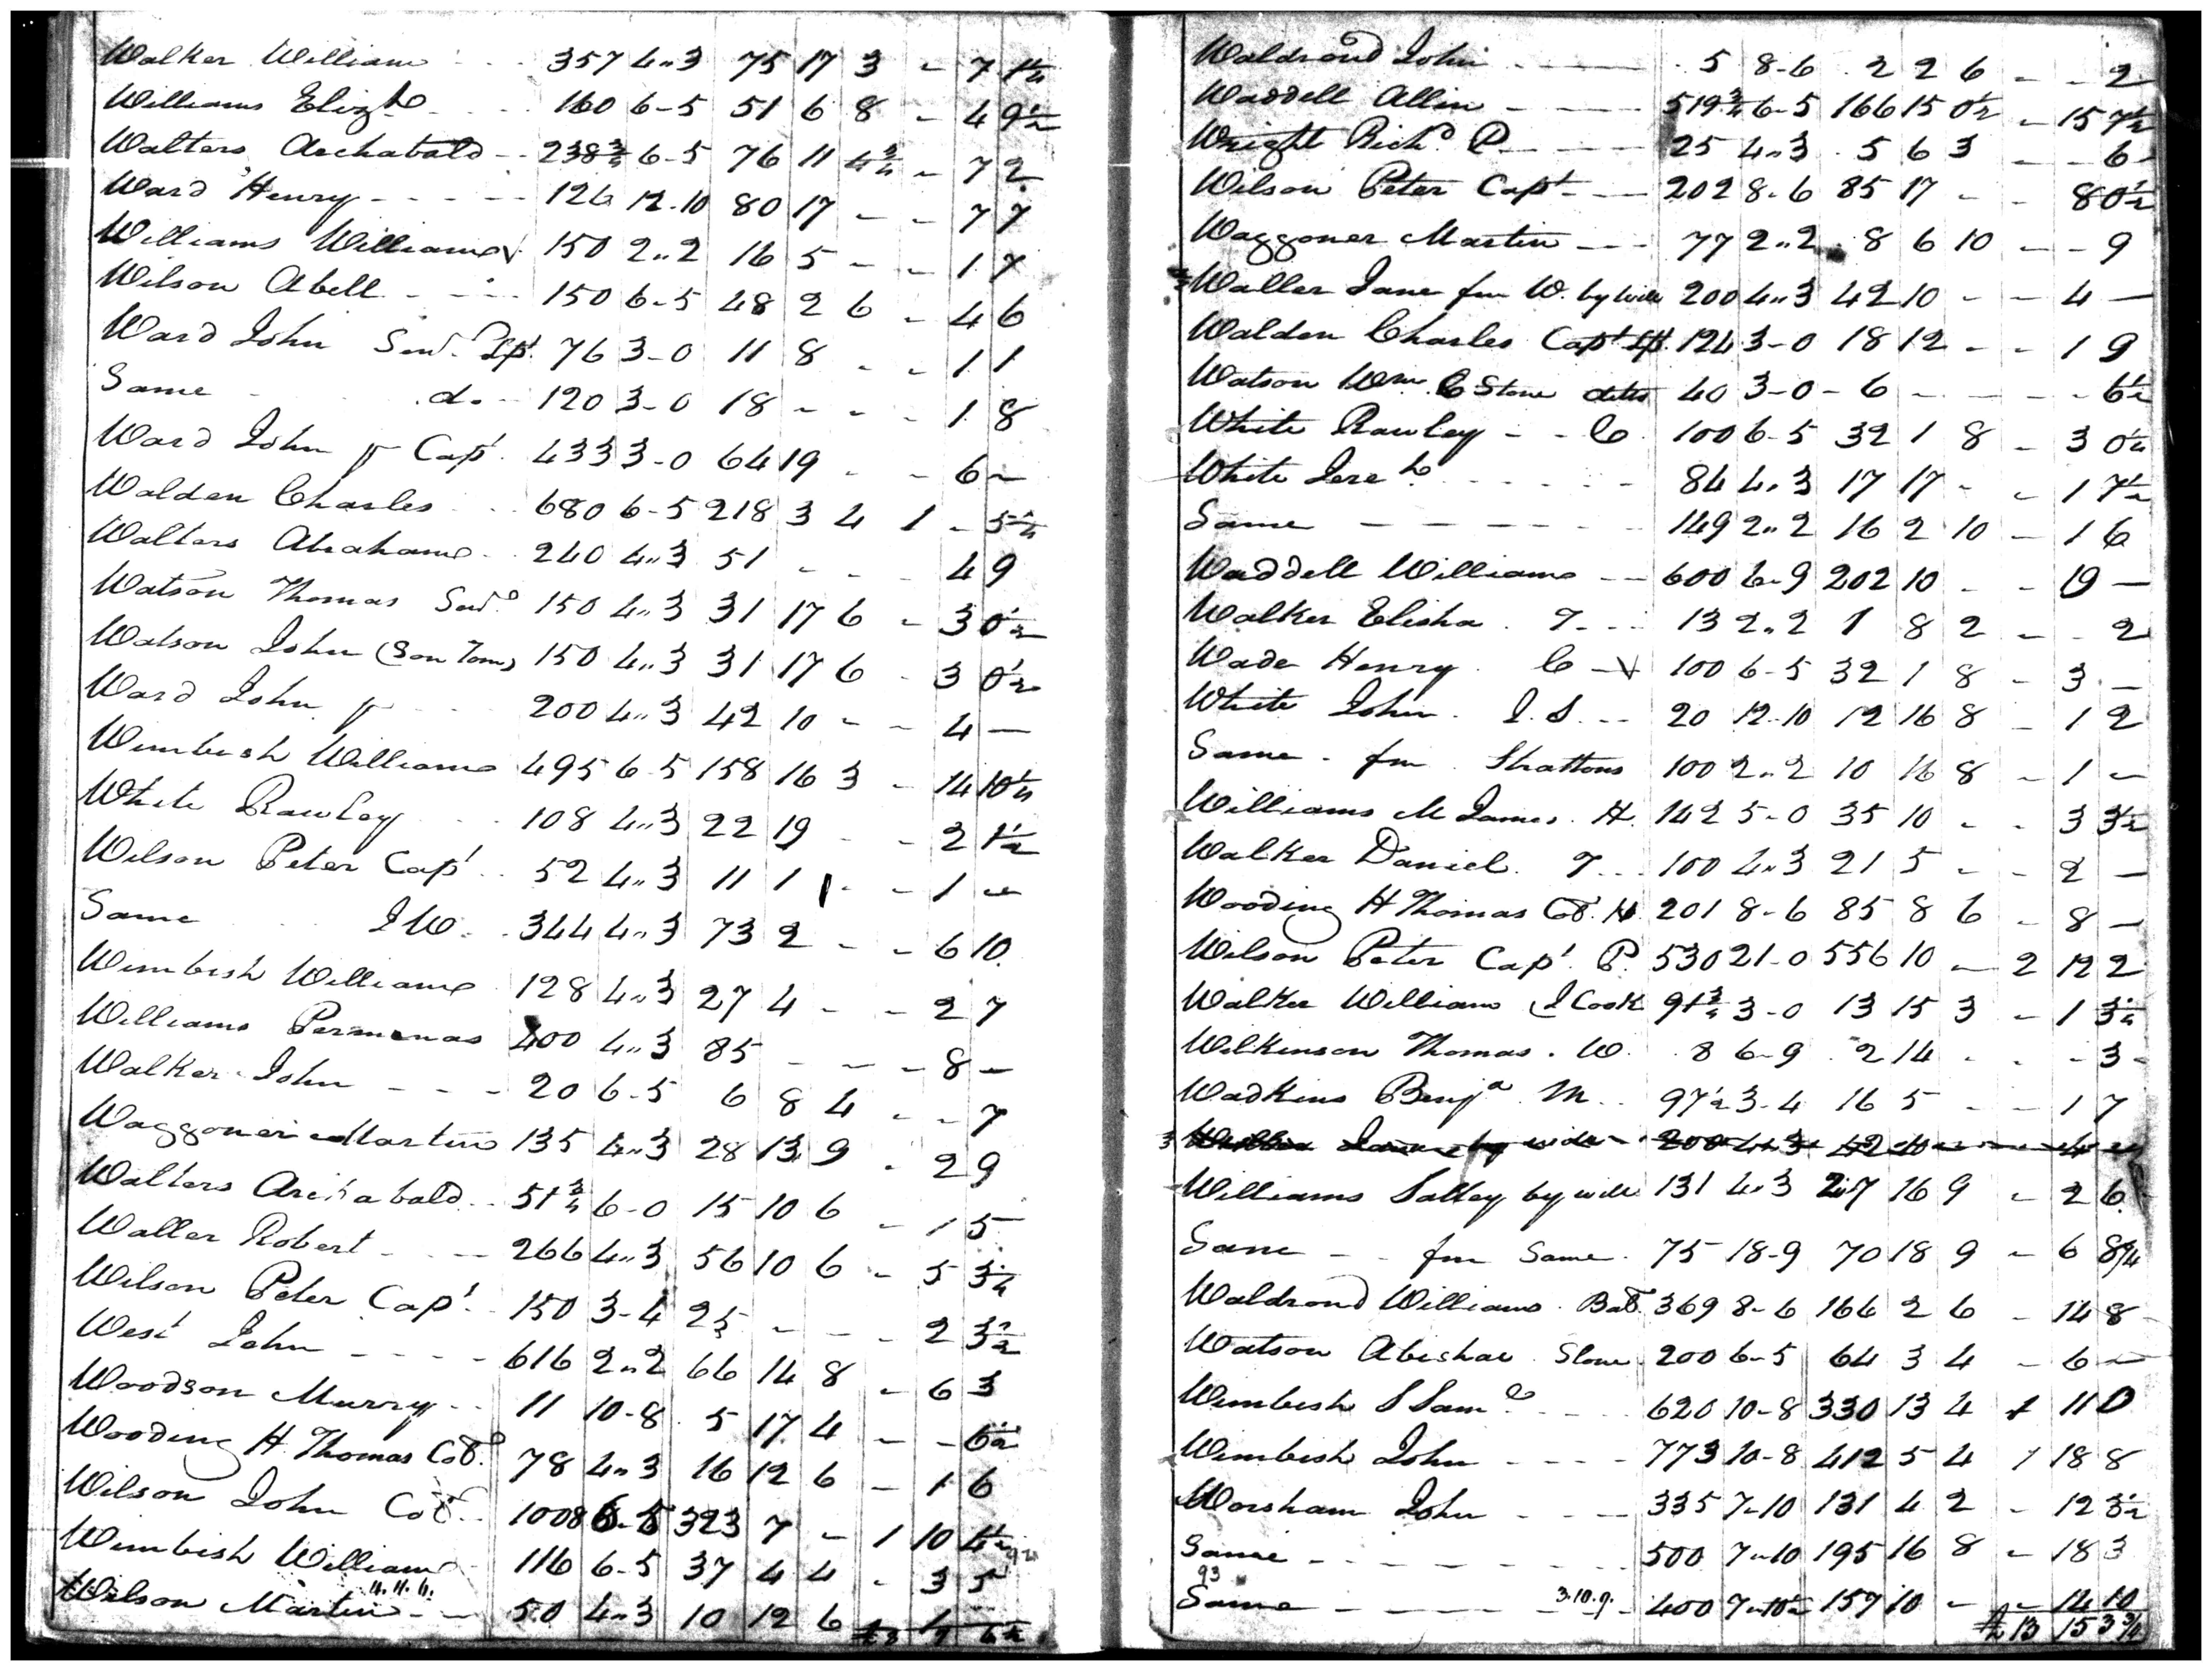 Walker William 357 4..3 75 17 3 - 7 1¼
Williams Elizh 160 6-5 51 6 8 - 4 9½
Walters Archabald 238¾ 6-5 76 11 4¾ - 7 2
Ward Henry 126 12.10 80 17 - - 7 7
Williams William 150 2..2 16 5 - - 1 7
Wilson Abell 150 6-5 48 2 6 - 4 6
Ward John Senr 76 3-0 11 8 - - 1 1
Same do 120 3-0 18 - - - 1 8
Ward John jr Capt 433 3-0 64 19 - - 6 -
Walden Charles 680 6-5 218 3 4 1 - 5¼
Walters Abraham 240 4..3 51 - - - 4 9
Watson Thomas Senr 150 4..3 31 17 6 - 3 0½
Watson John (Son Tom) 150 4..3 31 17 6 - 3 0½
Ward John jr 200 4..3 42 10 - - 4 -
Wimbish William 495 6-5 158 16 3 - 14 10¼
White Rawley 108 4..3 22 19 - - 2 1½
Wilson Peter Capt 52 4..3 11 1 - - 1 -
Same J W. 344 4..3 73 2 - - 6 10
Wimbish William 128 4..3 27 4 - - 2 7
Williams Permenas 400 4..3 85 - - - 8 -
Walker John 20 6-5 6 8 4 - - 7
Waggoner Martin 135 4..3 28 13 9 - 2 9
Walters Archabald 51¾ 6-0 15 10 6 - 1 5
Waller Robert 266 4..3 56 10 6 - 5 3¼
Wilson Peter Capt 150 3-4 25 - - - 2 3½
West John 616 2..2 66 14 8 - 6 3
Woodson Murry 11 10-8 5 17 4 - - 6½
Wooding H Thomas Col. 78 4..3 16 12 6 - 1 6
Wilson John Col 1008 6-5 323 7 - 1 10 4½
Wimbish William 116 6-5 37 4 4 - 3 5
Wilson Martin 50 4..3 10 12 6
Waldrond John 5 8-6 2 2 6 - - 2
Waddell Allin 519¾ 6-5 166 15 0½ - 15 7½
Wright Richd P 25 4..3 5 6 3 - - 6
Wilson Peter Capt 202 8-6 85 17 - - 8 0½
Waggoner Martin 77 2..2 8 6 10 - - 9
Waller Jane fm W. by will 200 4..3 42 10 - - 4 -
Walden Charles Capt 124 3-0 18 12 - - 1 9
Watson Wm C Stone 40 3-0 - 6 - - - - 6½
White Rawley C 100 6-5 32 1 8 - 3 0¼
White Jereh 84 4..3 17 17 - - 1 7½
Same 149 2..2 16 2 10 - 1 6
Waddell William 600 6-9 202 10 - - 19 -
Walker Elisha T 13 2..2 1 8 2 - - 2
Wade Henry C 100 6-5 32 1 8 - 3 -
White John J.S. 20 12.10 12 16 8 - 1 2
Same fm Shattons 100 2..2 10 16 8 - 1 -
Williams M James H. 142 5-0 35 10 - - 3 3½
Walker Daniel T 100 4..3 21 5 - - 2 -
Wooding H Thomas Col. H. 201 8-6 85 8 6 - 8 -
Wilson Peter Capt P. 530 21-0 556 10 - 2 12 2
Walker William J Cook 91¾ 3-0 13 15 3 - 1 3¼
Wilkinson Thomas. W. 8 6-9 2 14 - - - 3
Wadkins Benja M 97½ 3-4 16 5 - - 1 7
Williams Salley by will 131 4..3 27 16 9 - 2 6
Same fm Same 75 18-9 70 18 9 - 6 8¾
Waldrond William 369 8-6 166 2 6 - 14 8
Watson Abishai Stone 200 6-5 64 3 4 - 6 -
Wimbish S Saml 620 10-8 330 13 4 1 11 0
Wimbish John 773 10-8 412 5 4 1 18 8
Worsham John 335 7-10 131 4 2 - 12 3½
Same 500 7-10 195 16 8 - 18 3
93
Same 3.10.9. 400 7-10½ 157 10 - - 14 10
£13 15 3¾